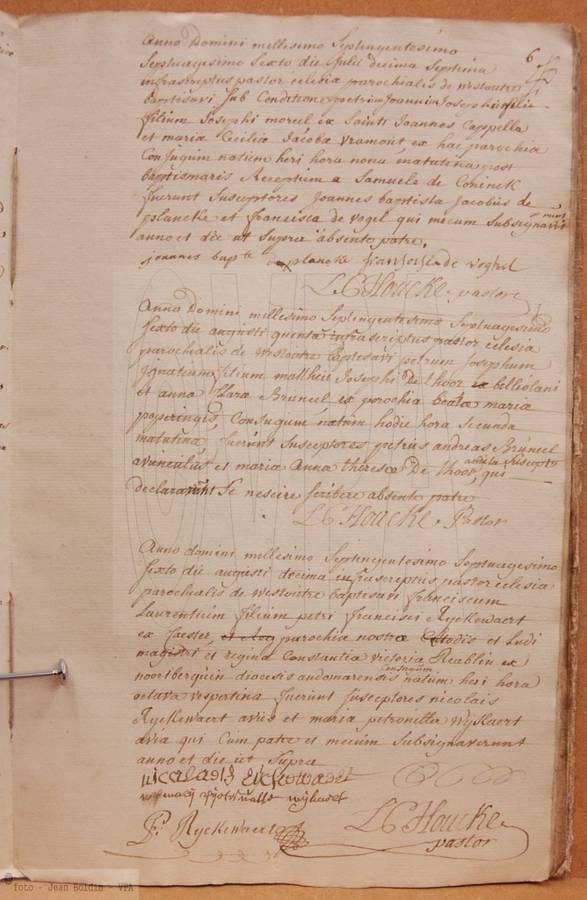 6
Anno Domini millesimo Septingentesimo
Septuagesimo Sexto die Julii decima Septima
infrascriptus pastor eclesia parochialis de westoutre
baptisavi Sub Conditione petrum Joannem Josephum
filium Josephi moreel ex Sancti Joannes Cappella
et maria Cecilia Jacoba vramout ex hac parochia
Conjugum natum heri hora nona matutina post
baptismaris Receptum a Samuele de Coninck
fuerunt Susceptores Joannes baptista Jacobus de
plancke et francisca de vogel qui mecum Subsignaverunt
anno et die ut Supra absente patre.
joannes bapte de plancke fransoise de veghel
L C Houcke pastor
Anno Domini millesimo Septingentesimo Septuagesimo
Sexto die augusti quenta infrascriptus pastor eclesia
parochialis de westoutre baptisavi petrum Josephum
Ignatium filium matthei Josephi De thoor ex belliolani
et anna Clara Bruneel ex parochia beata maria
poperingis, Conjugum natum hodie hora Secunda
matutina fuerunt Susceptores petrus andreas Bruneel
avunculus et maria Anna theresa De thoor, qui
declararunt Se nescire scribere absente patre
L C Houcke. Pastor
Anno domini millesimo Septingentesimo Septuagesimo
Sexto die augusti decima infrascriptus pastor eclesia
parochialis de westoutre baptisavi franciscum
Laurentium filium petri francisci Ryckewaert
ex Caester, parochia nostra Custodis et Ludi
magistri et regina Constantia victoria Reablin ex
noortberquin diocesis audomarensis Conjugum natum heri hora
octava vespertina fuerunt Susceptores nicolais
Ryckewaert avus et maria petronella Wyckaert
avia qui Cum patre et mecum Subsignaverunt
anno et die ut Supra
P. Ryckewaert
L C Houcke
pastor
© foto - Jean Boldin - VPA